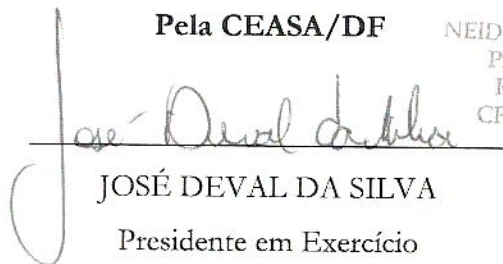 Pela CEASA/DF
NEID
José Deval da Silva
JOSÉ DEVAL DA SILVA
Presidente em Exercício